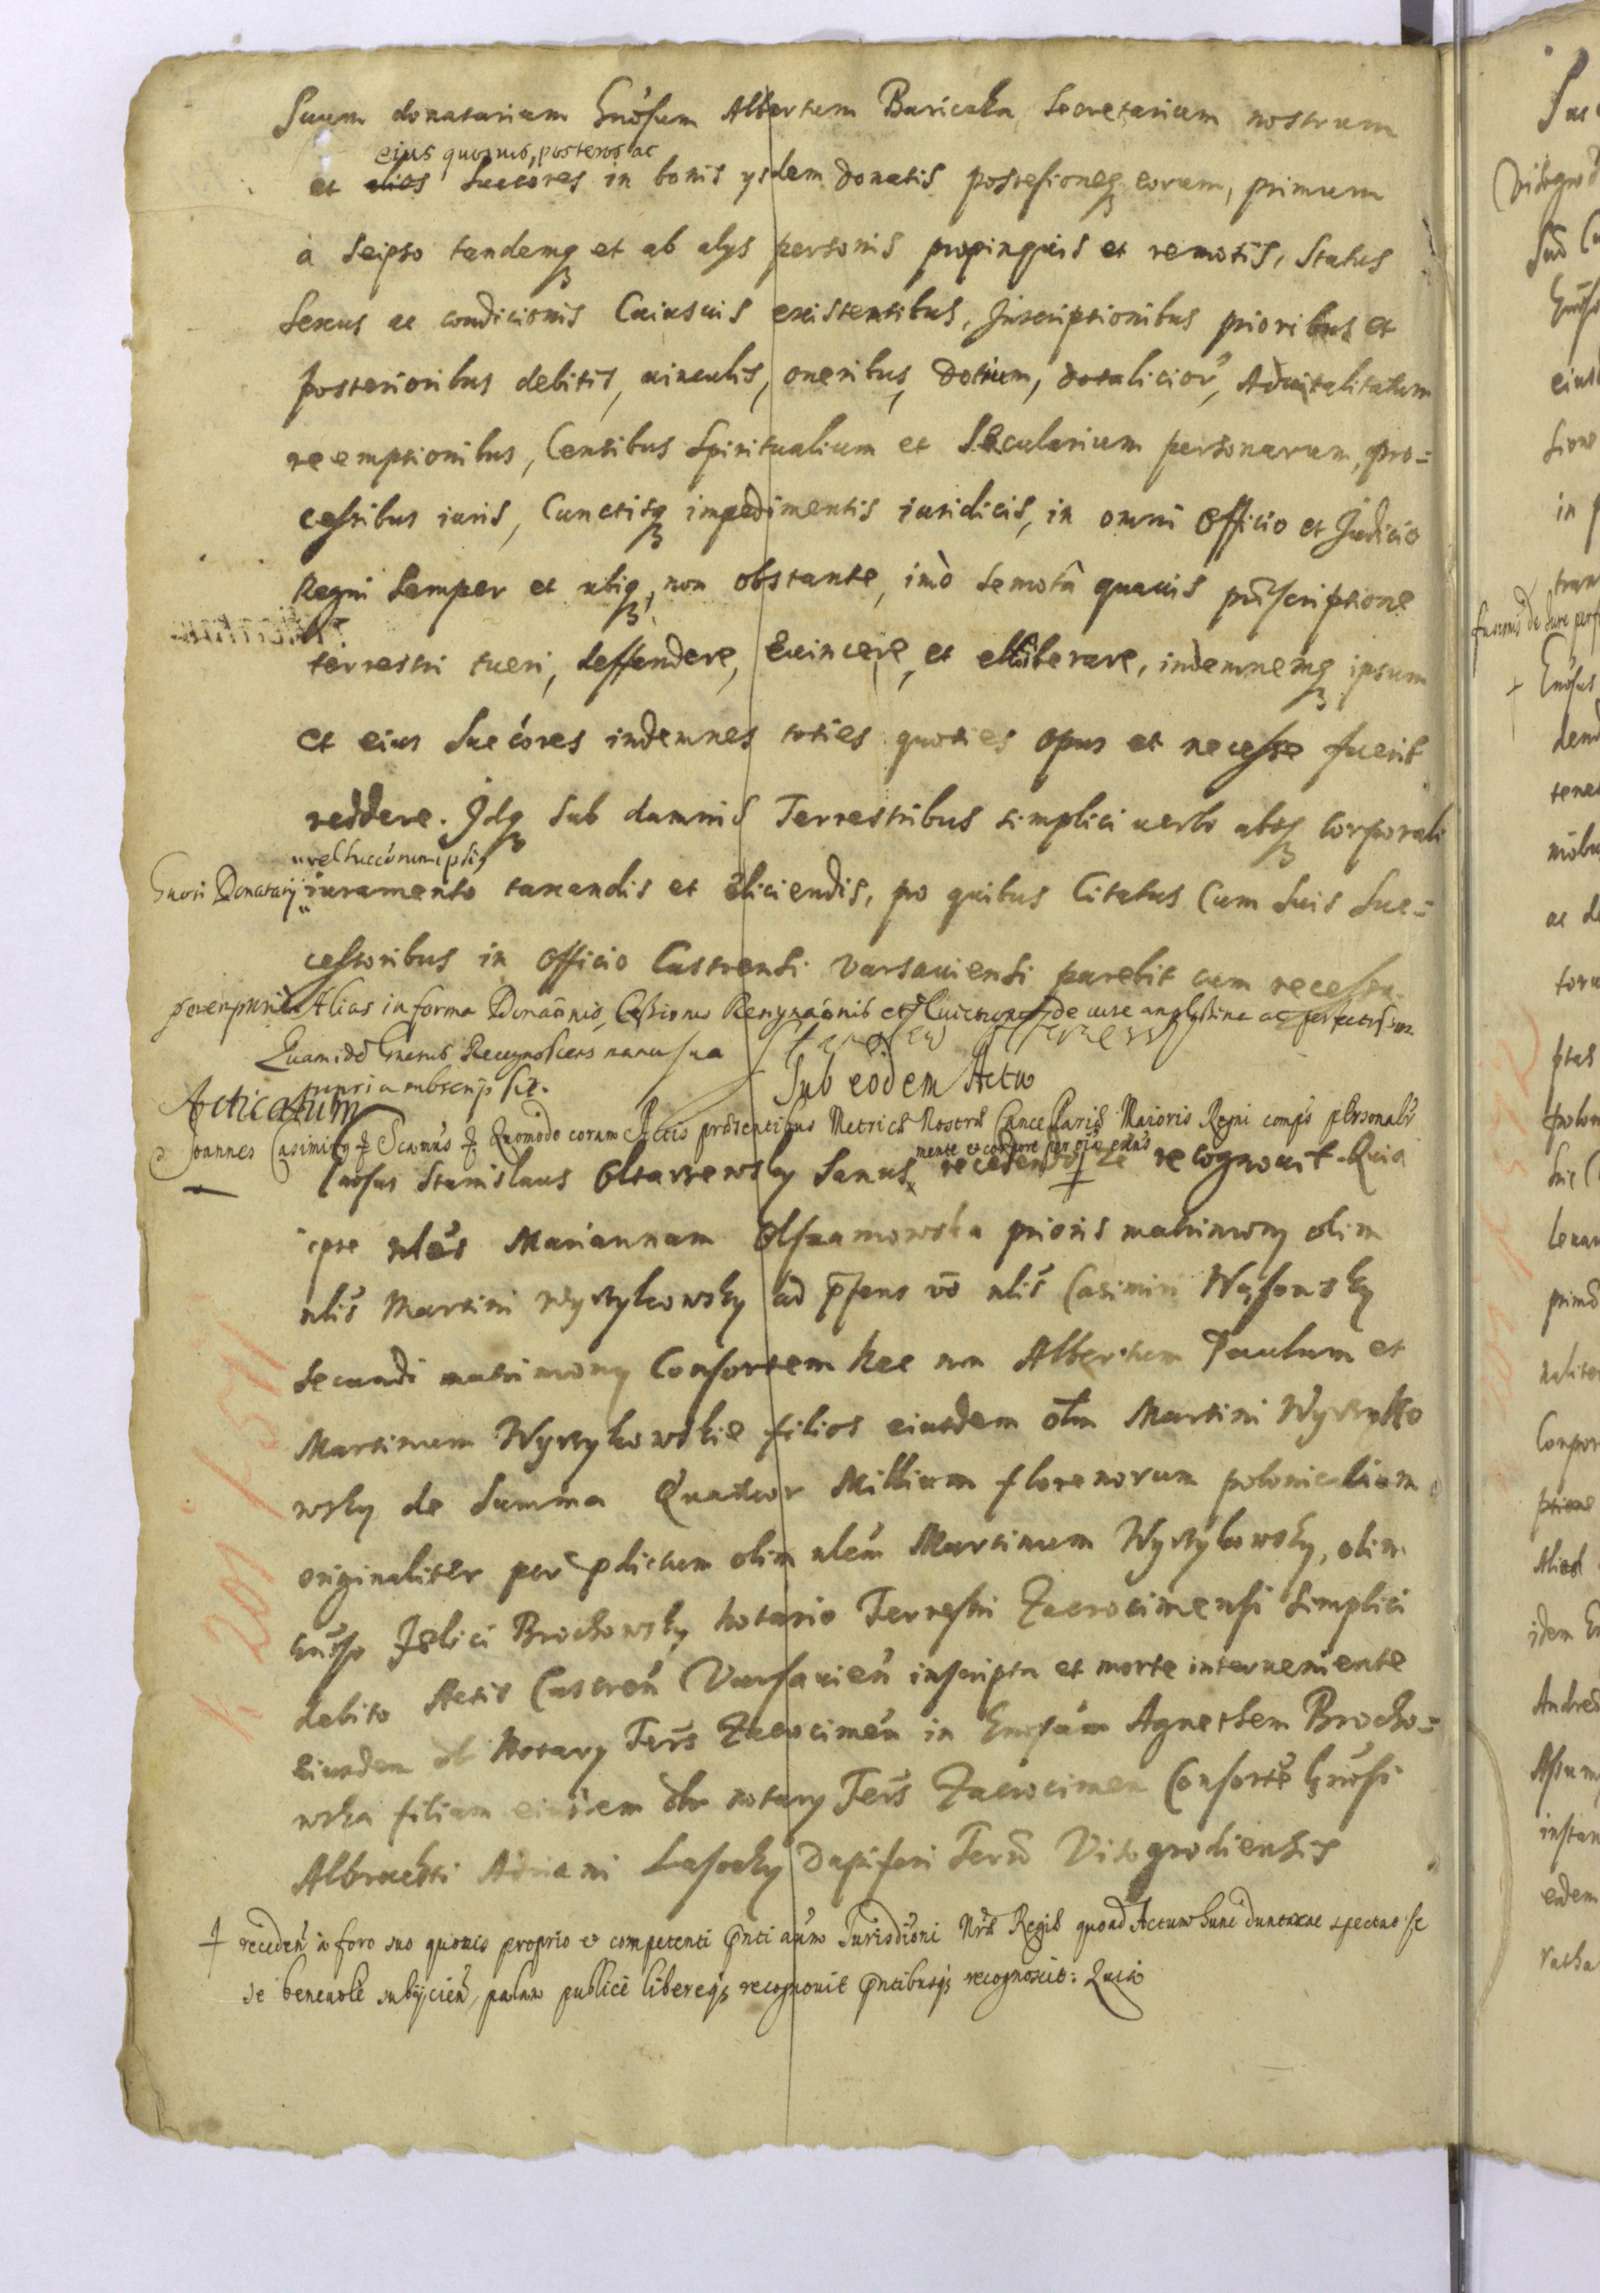 Suum donatarium Gnosum Albertum Bariczka Secretarium nostrum
eius quosuis, posteros ac
et alios Succores in bonis ysdem donatis possesioneq eorum, primum
à seipso tandemq et ab alys personis propinquis et remotis, Status
Sexus ac condicionis Cuiusuis existentibus, Inscriptionibus prioribus et
posterioribus debitis, uinculis, oneribus, dotium, dotalicior, Aduitalitatum
reemptionibus, Censibus Spiritualium et Secularium personarum, pro=
cessibus iuris, Cunctisq impedimentis iuridicis, in omni Officio et Judicio
Regni Semper et ubiq, non obstante, imò semotâ quauis pscriptione
terrestri tueri, deffendere, euincere, et elliberare, indemnemq ipsum
et eius Succores indemnes toties quoties opus et necesse fuerit
reddere. Idq sub damnis Terrestribus simplici uerbo absq corporali
Gnosi Donatary
iuramento taxandis et eliciendis, pro quibus Citatus Cum suis Suc=
cessoribus in Officio Castrensi Varsauiensi parebit cum recessu
Alias in forma Donaonis, Cessionis Resignaonis et Euictionis de iure amplissima ac perfectissima
Quam idem Generosus Recognoscens manu sua
propria subscripsit.
Sub eodem Actu
Acticatum
Joannes Casimirus Quomodo coram Actis praesentibus Metrices Nostrae Cancellariae Maioris Regni comps personalr
mente et corpore per oia exns
Gnosus Stanislaus Oltarzewsky Sanus recedendo recognouit Quia
ipse nles Mariannam Olszamowska prioris matrimony olim
nlis Martini Wyrzykowsky ad psens vo nlis Casimiri Wąsowsky
secundi matrimony Consortem Nec non Albertum Paulum et
Martinum Wyrzykowskie filios eiusdem olm Martini Wyrzyko
wsky de Summa Quatuor Millium florenorum polonicalium
originaliter per pdictum olim nlem Martinum Wyrzykowsky, olim
Gnoso Felici Brochowsky Notario Terrestri Zacrocimensi simplici
debito Actis Castren Varsauien inscripta et morte interueniente
eiusdem ol Notary Ters Zacrocimen in Gnosam Agnethem Brocho=
wska filiam eiusdem olm notary Ters Zacrocimen Consorte Gnosi
Albrachti Adriani Lasocky Dapiferi Terro Visogrodiensis
receden à foro suo quouis proprio et competenti pnti aum Jurisdioni Nrae Regis quoad Actum hunc duntaxat spectat se
se beneuole subijcien, palam publice libereqs recognouit pntibusqs recognoscit: Quia